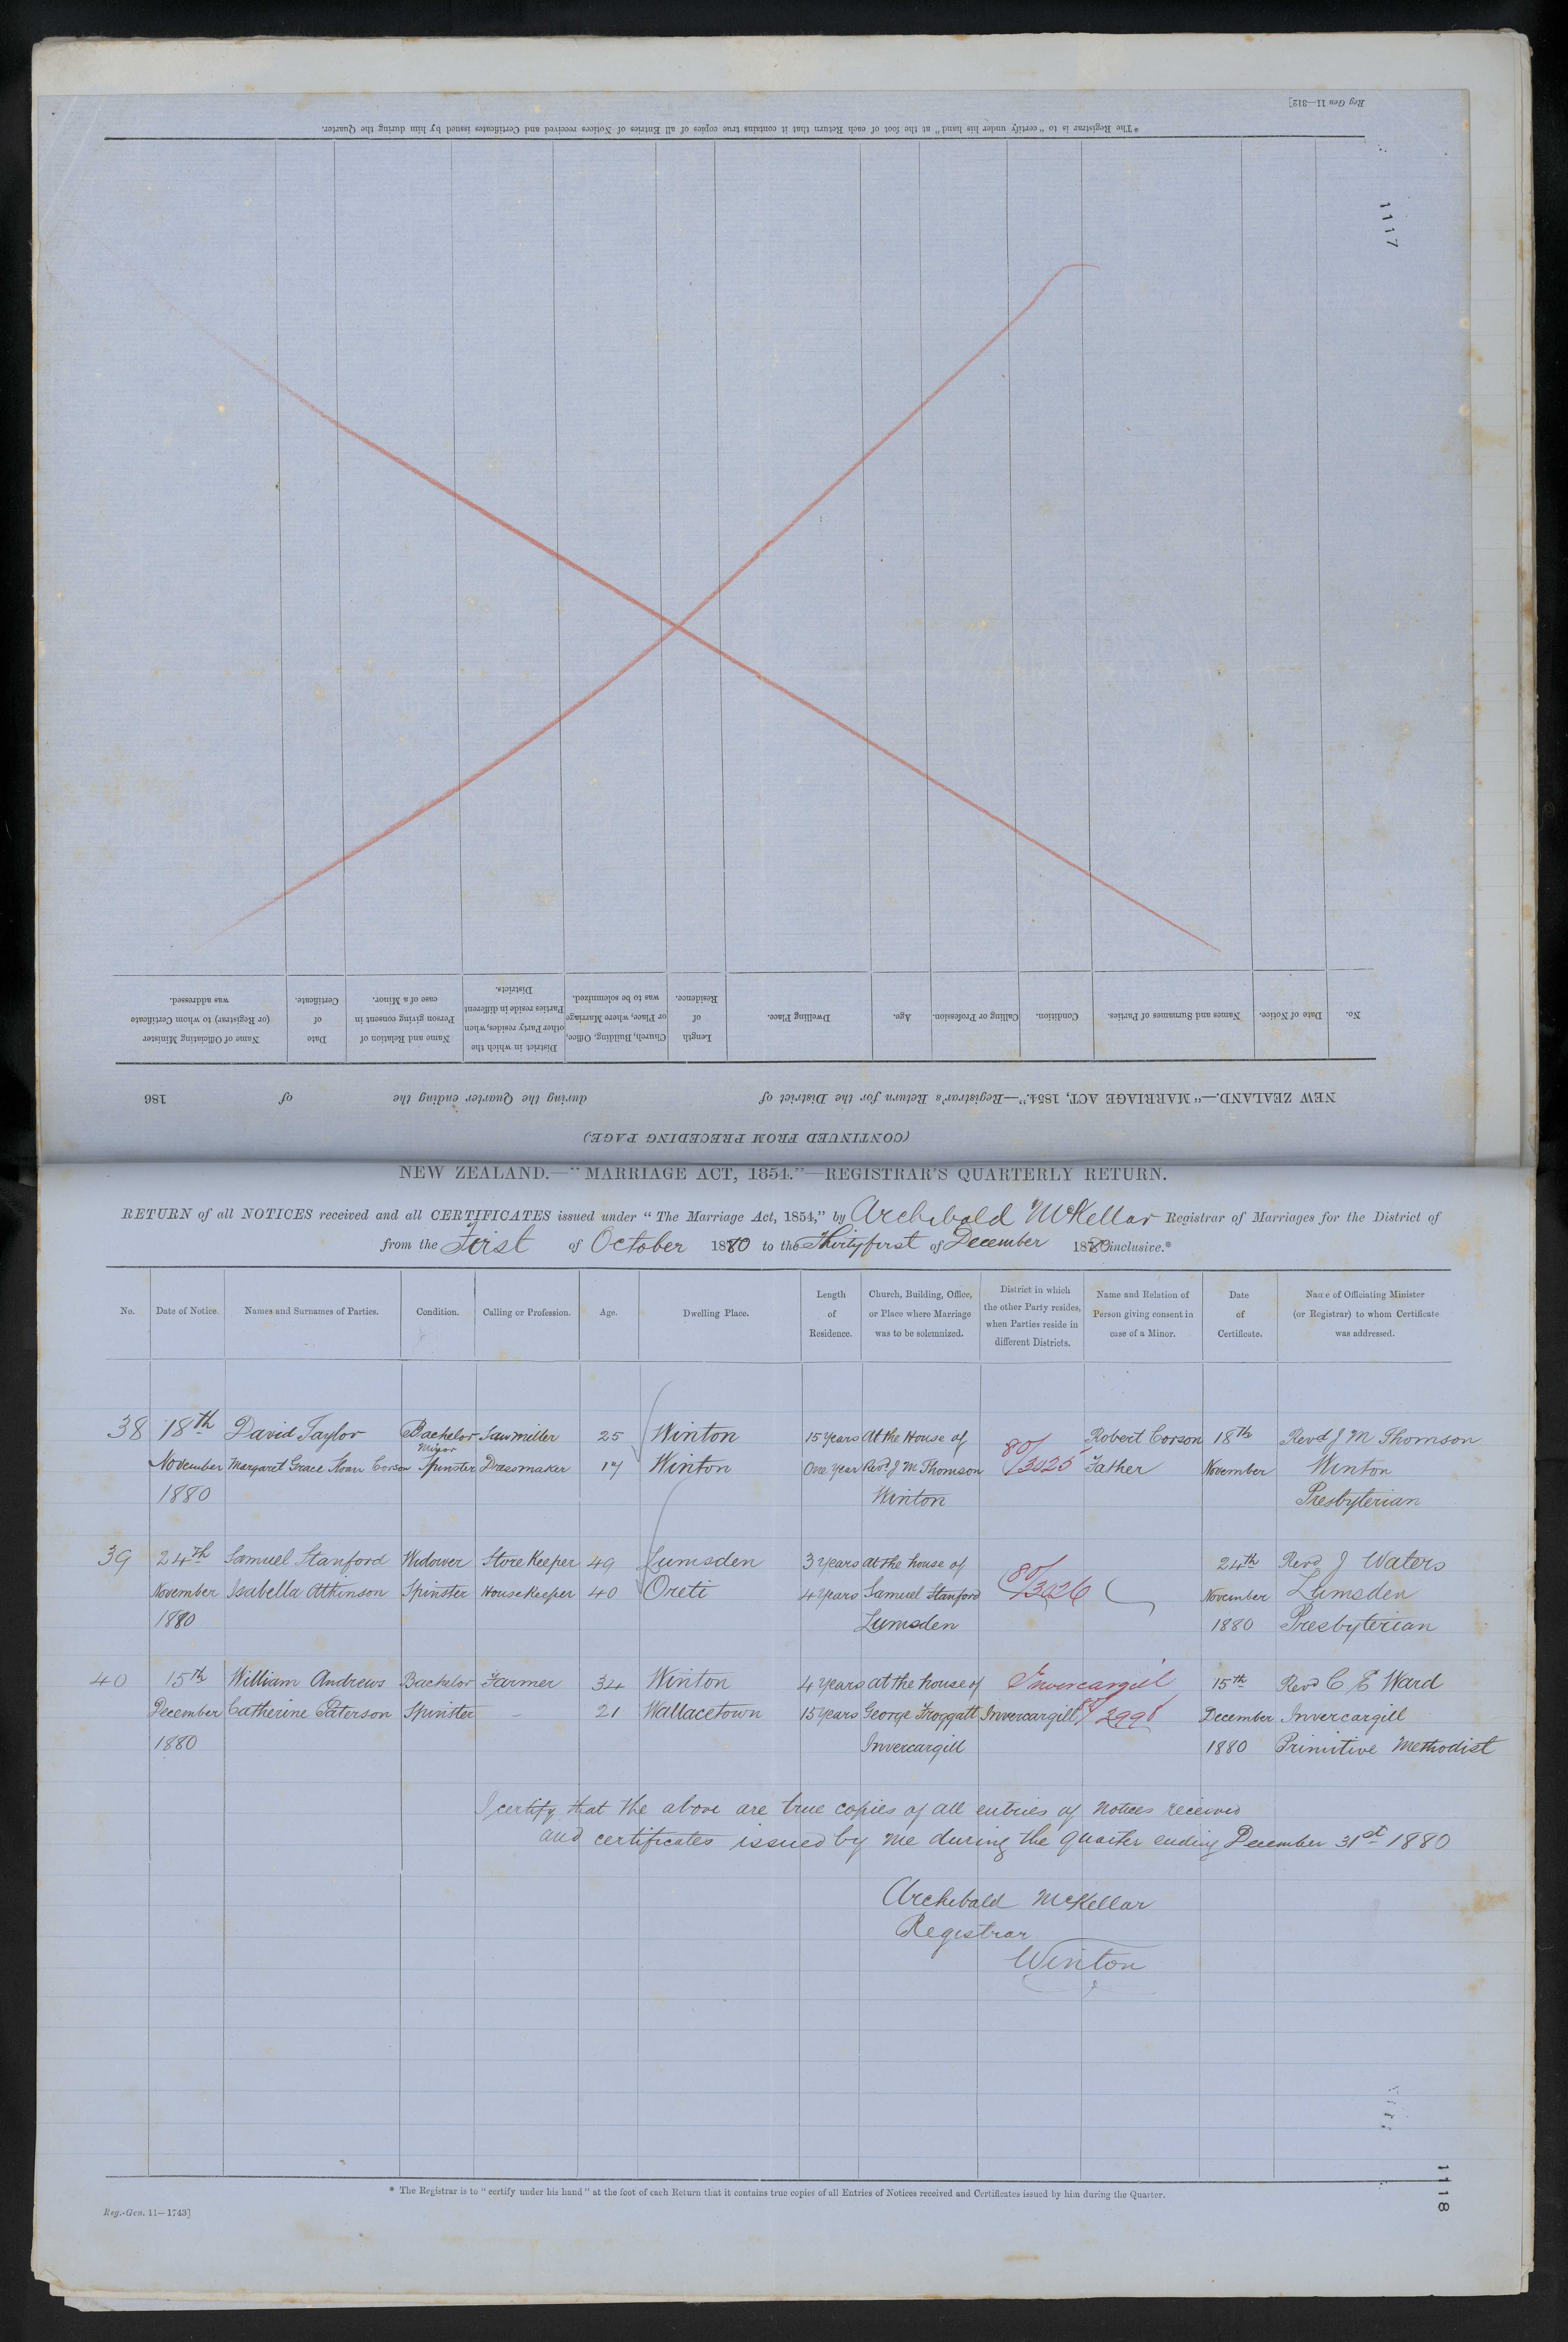 Reg Gen 11—312]
* The Registrar is to "certify under his hand" at the foot of each Return that it contains true copies of all Entries of Notices received and Certificates issued by him during the Quarter.
1117
(CONTINUED FROM PRECEDING PAGE)
NEW ZEALAND.—"MARRIAGE ACT, 1854."—Registrar's Return for the District of during the Quarter ending the of 186
No. Date of Notice. Names and Surnames of Parties. Condition. Calling or Profession. Age. Dwelling Place. Length of Residence. Church, Building, Office, or Place, where Marriage was to be solemnized. District in which the other Party resides, when Parties reside in different Districts. Name and Relation of Person giving consent in case of a Minor. Date of Certificate. Name of Officiating Minister (or Registrar) to whom Certificate was addressed.
NEW ZEALAND.—"MARRIAGE ACT, 1854."—REGISTRAR'S QUARTERLY RETURN.
RETURN of all NOTICES received and all CERTIFICATES issued under "The Marriage Act, 1854," by Archibald McKellar Registrar of Marriages for the District of
from the First of October 1880 to the Thirtyfirst of December 1880 inclusive.*
No. Date of Notice. Names and Surnames of Parties. Condition. Calling or Profession. Age. Dwelling Place. Length of Residence. Church, Building, Office, or Place where Marriage was to be solemnized. District in which the other Party resides, when Parties reside in different Districts. Name and Relation of Person giving consent in case of a Minor. Date of Certificate. Name of Officiating Minister (or Registrar) to whom Certificate was addressed.
38 18th David Taylor Bachelor Sawmiller 25 Winton 15 Years At the House of 80/ Robert Corson 18th Revd J M Thomson
Minor
November Margaret Grace Corson Spinster Dressmaker 17 Winton One Year Revd J M Thomson 3025 Father November Winton
1880 Winton Presbyterian
39 24th Samuel Stanford Widower Store Keeper 49 Lumsden 3 years at the house of 80/ 24th Revd J Waters
November Isabella Atkinson Spinster House Keeper 40 Oreti 4 Years Samuel Stanford 3026 November Lumsden
1880 Lumsden 1880 Presbyterian
40 15th William Andrews Bachelor Farmer 34 Winton 4 years at the house of Invercargill 15th Revd C E Ward
December Catherine Paterson Spinster - 21 Wallacetown 15 Years George Froggatt Invercargill December Invercargill
1880 Invercargill 1880 Primitive Methodist
I certify that the above are true copies of all entries of notices received
and certificates issued by me during the quarter ending December 31st 1880
Archibald McKellar
Registrar
Winton
* The Registrar is to "certify under his hand" at the foot of each Return that it contains true copies of all Entries of Notices received and Certificates issued by him during the Quarter.
Reg.-Gen. 11—1743]
1118